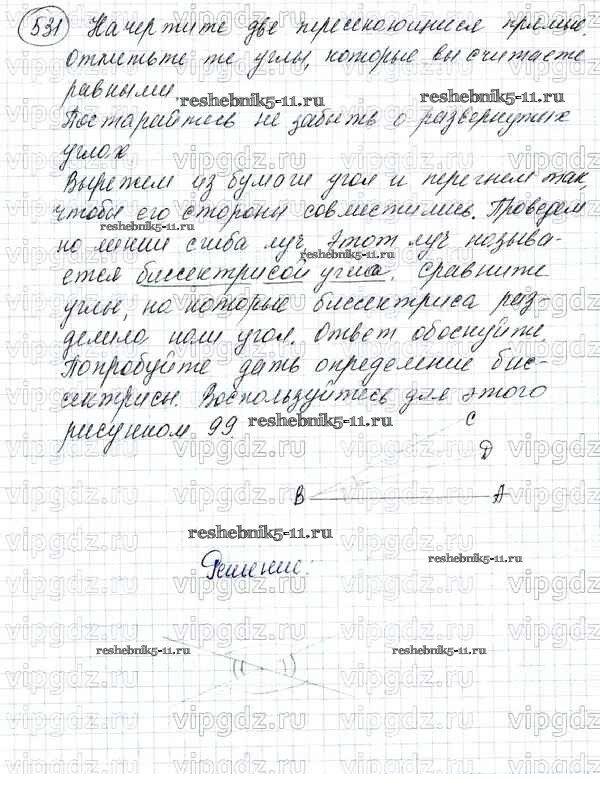 531 Начертите две пересекающиеся прямые.
Отметьте те углы, которые вы считаете
равными
reshebnik5-11.ru
Постарайтесь не забыть о развернутых
углах
Вырежем из бумаги угол и перегнем так,
чтобы его стороны совместились. Проведем
по линии сгиба луч. Этот луч называ-
ется биссектрисой угла. Сравните
углы, на которые биссектриса раз-
делила наш угол. Ответ обоснуйте.
Попробуйте дать определение бис-
сектрисы. Воспользуйтесь для этого
рисунком 99.
reshebnik5-11.ru
C
D
B A
reshebnik5-11.ru
Решение:
reshebnik5-11.ru
reshebnik5-11.ru reshebnik5-11.ru
vipgdz.ru